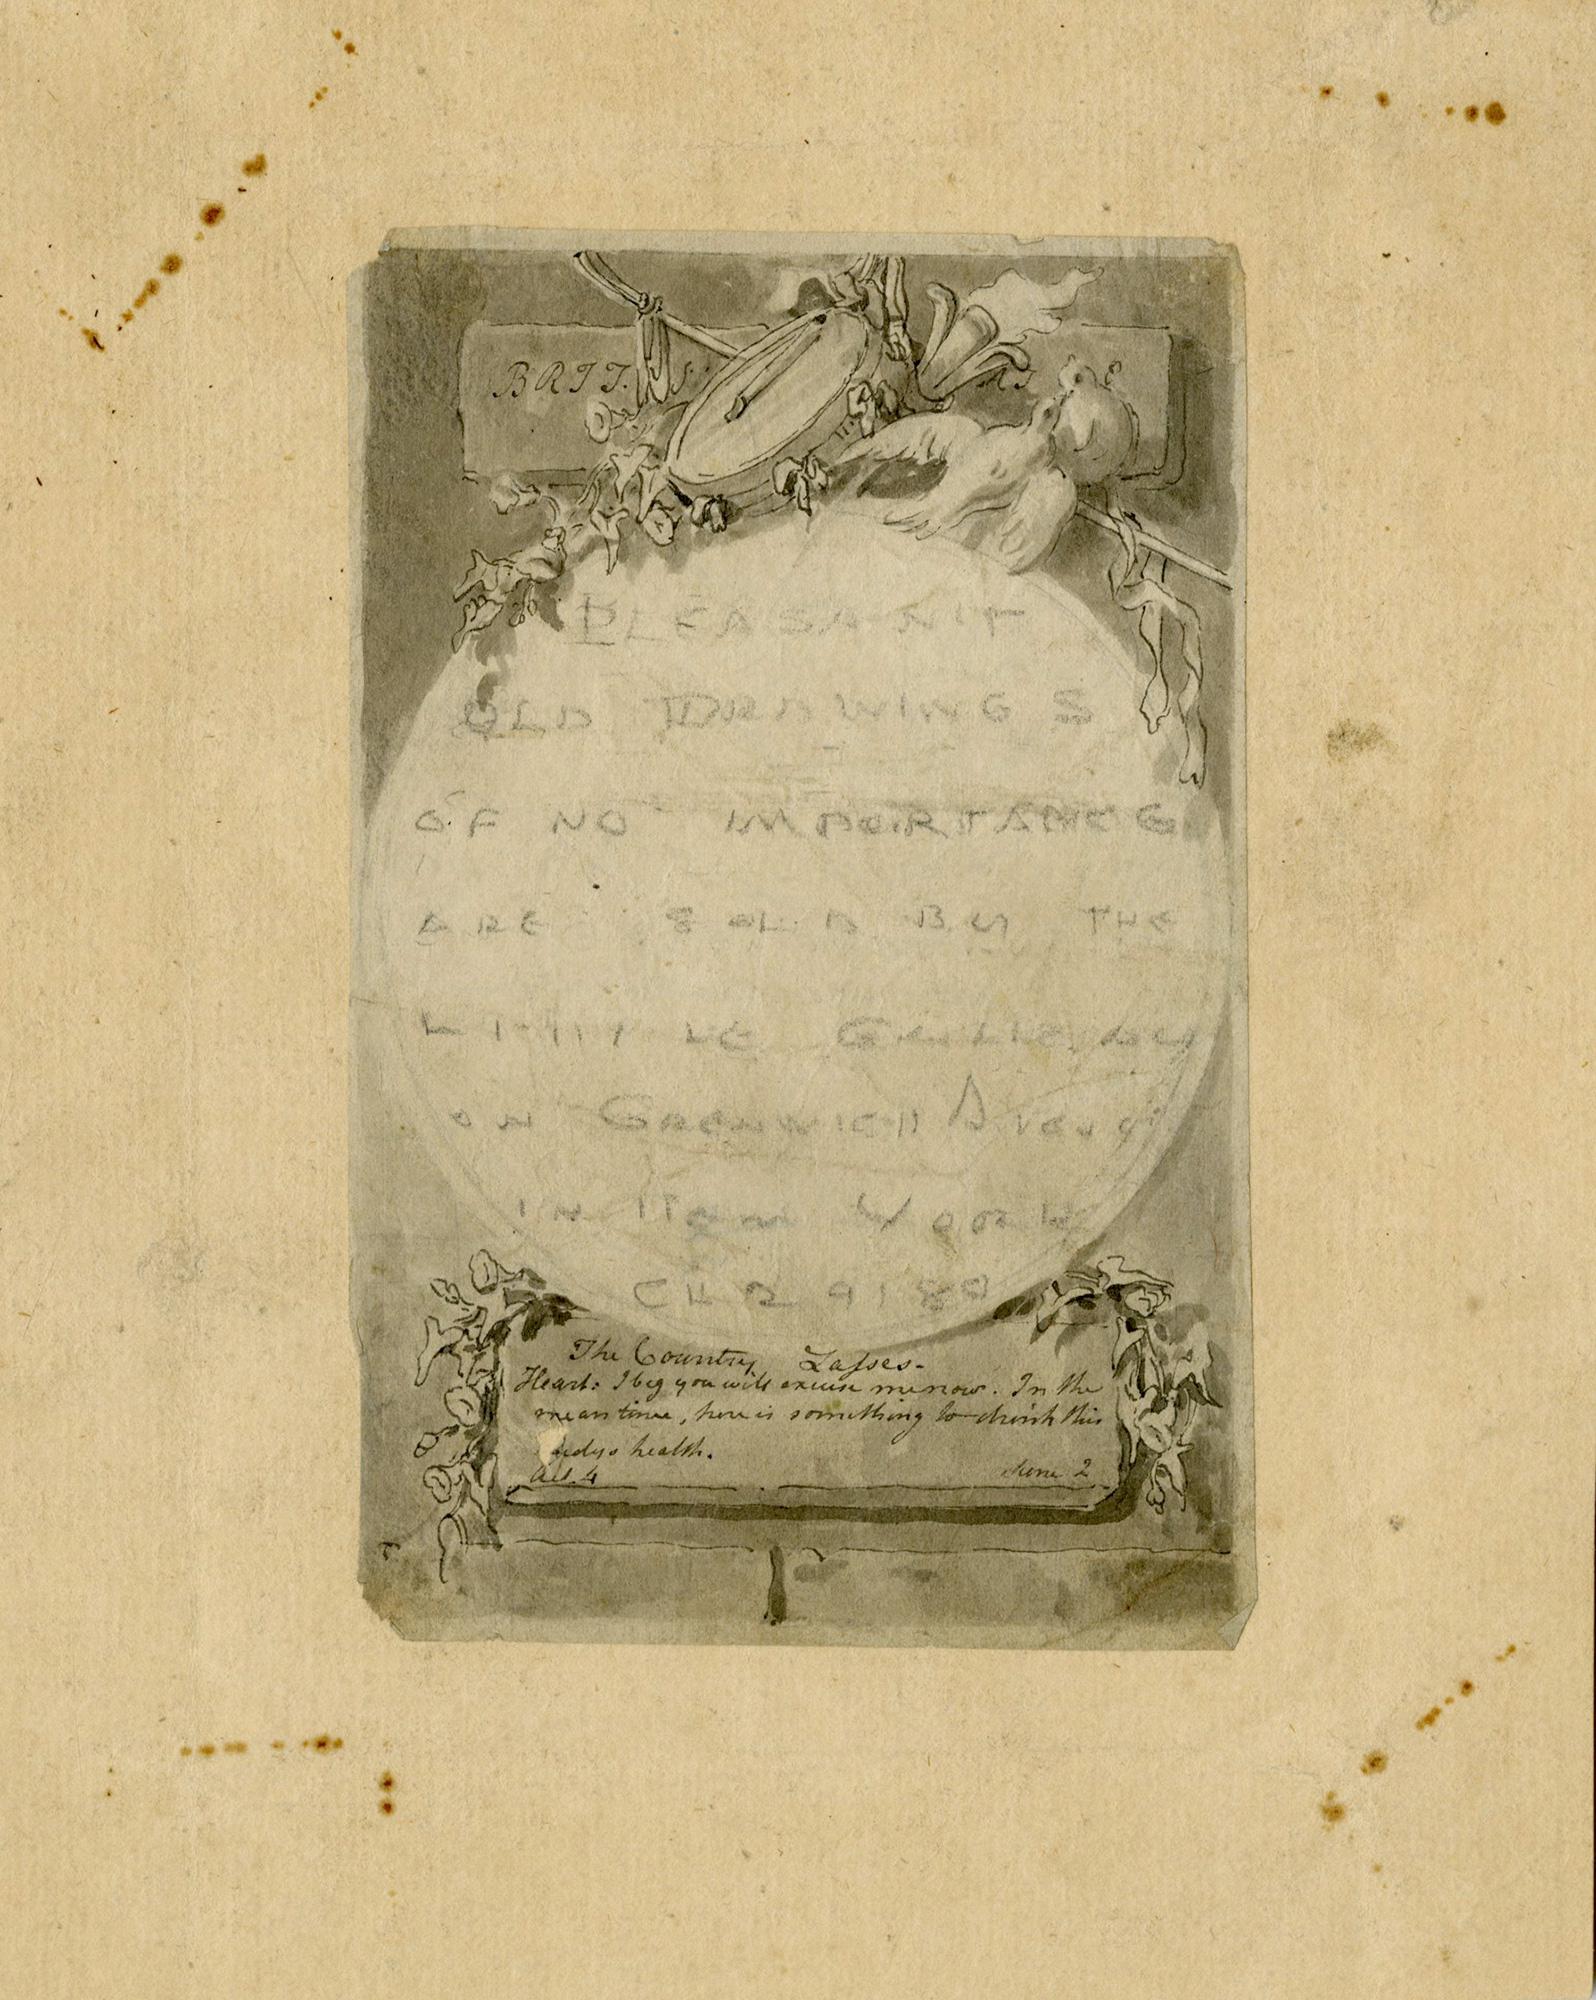 BRIT
PLEASANT
OLD DRAWINGS
OF NO IMPORTANCE
ARE SOLD BY THE
LITTLE GALLERY
ON GREENWICH AVENUE
IN NEW YORK
CH 2 9189
The Country Lasses.
Heart: I beg you will excuse me now. In the
mean time, here is something to drink this
Ladys health.
Act. 4 Scene 2